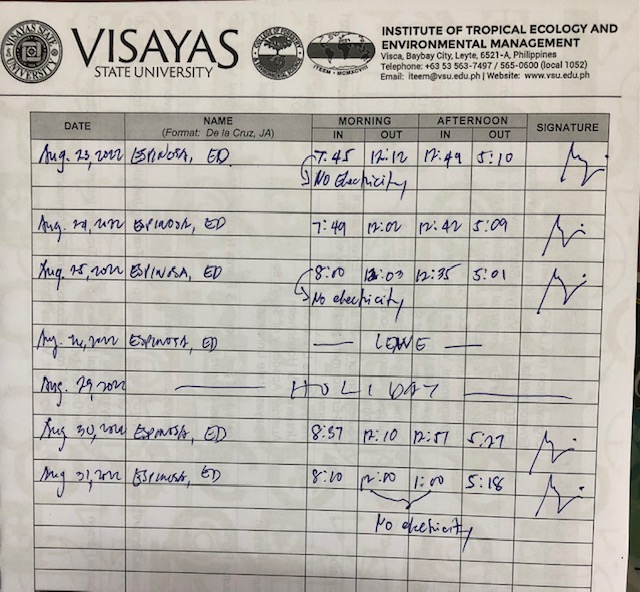 VISAYAS
STATE UNIVERSITY
INSTITUTE OF TROPICAL ECOLOGY AND
ENVIRONMENTAL MANAGEMENT
Visca, Baybay City, Leyte, 6521-A, Philippines
Telephone: +63 53 563-7497 / 565-0600 (local 1052)
Email: iteem@vsu.edu.ph | Website: www.vsu.edu.ph
DATE NAME (Format: De la Cruz, JA) MORNING IN OUT AFTERNOON IN OUT SIGNATURE
Aug. 23, 2022 ESPINOSA, ED 7:45 12:12 12:49 5:10
No Electricity
Aug. 24, 2022 ESPINOSA, ED 7:49 12:02 12:42 5:09
Aug. 25, 2022 ESPINOSA, ED 8:00 12:03 12:35 5:01
No electricity
Aug. 26, 2022 ESPINOSA, ED — LEAVE —
Aug. 29, 2022 — HOLIDAY —
Aug 30, 2022 ESPINOSA, ED 8:37 12:10 12:57 5:27
Aug 31, 2022 ESPINOSA, ED 8:10 12:00 1:00 5:18
No electricity